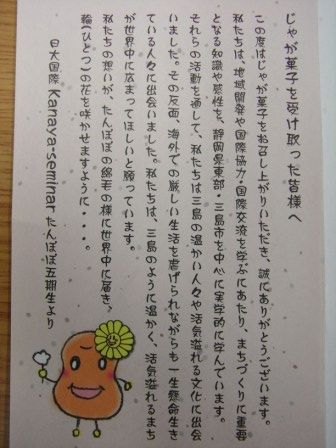 じゃが菓子を受け取った皆様へ
この度はじゃが菓子をお召し上がりいただき、誠にありがとうございます。
私たちは、地域開発や国際協力・国際交流を学ぶにあたり、まちづくりに重要
となる知識や感性を、静岡県東部・三島市を中心に実学的に学んでいます。
それらの活動を通して、私たちは三島の温かい人々や活気溢れる文化に出会
いました。その反面、海外での厳しい生活を虐げられながらも一生懸命生き
ている人々に出会いました。私たちは、三島のように温かく、活気溢れるまち
が世界中に広まってほしいと願っています。
私たちの想いが、たんぽぽの綿毛の様に世界中に届き、
輪(ひとつ)の花を咲かせますように・・・。
日大国際 Kanaya-seminar たんぽぽ五期生より